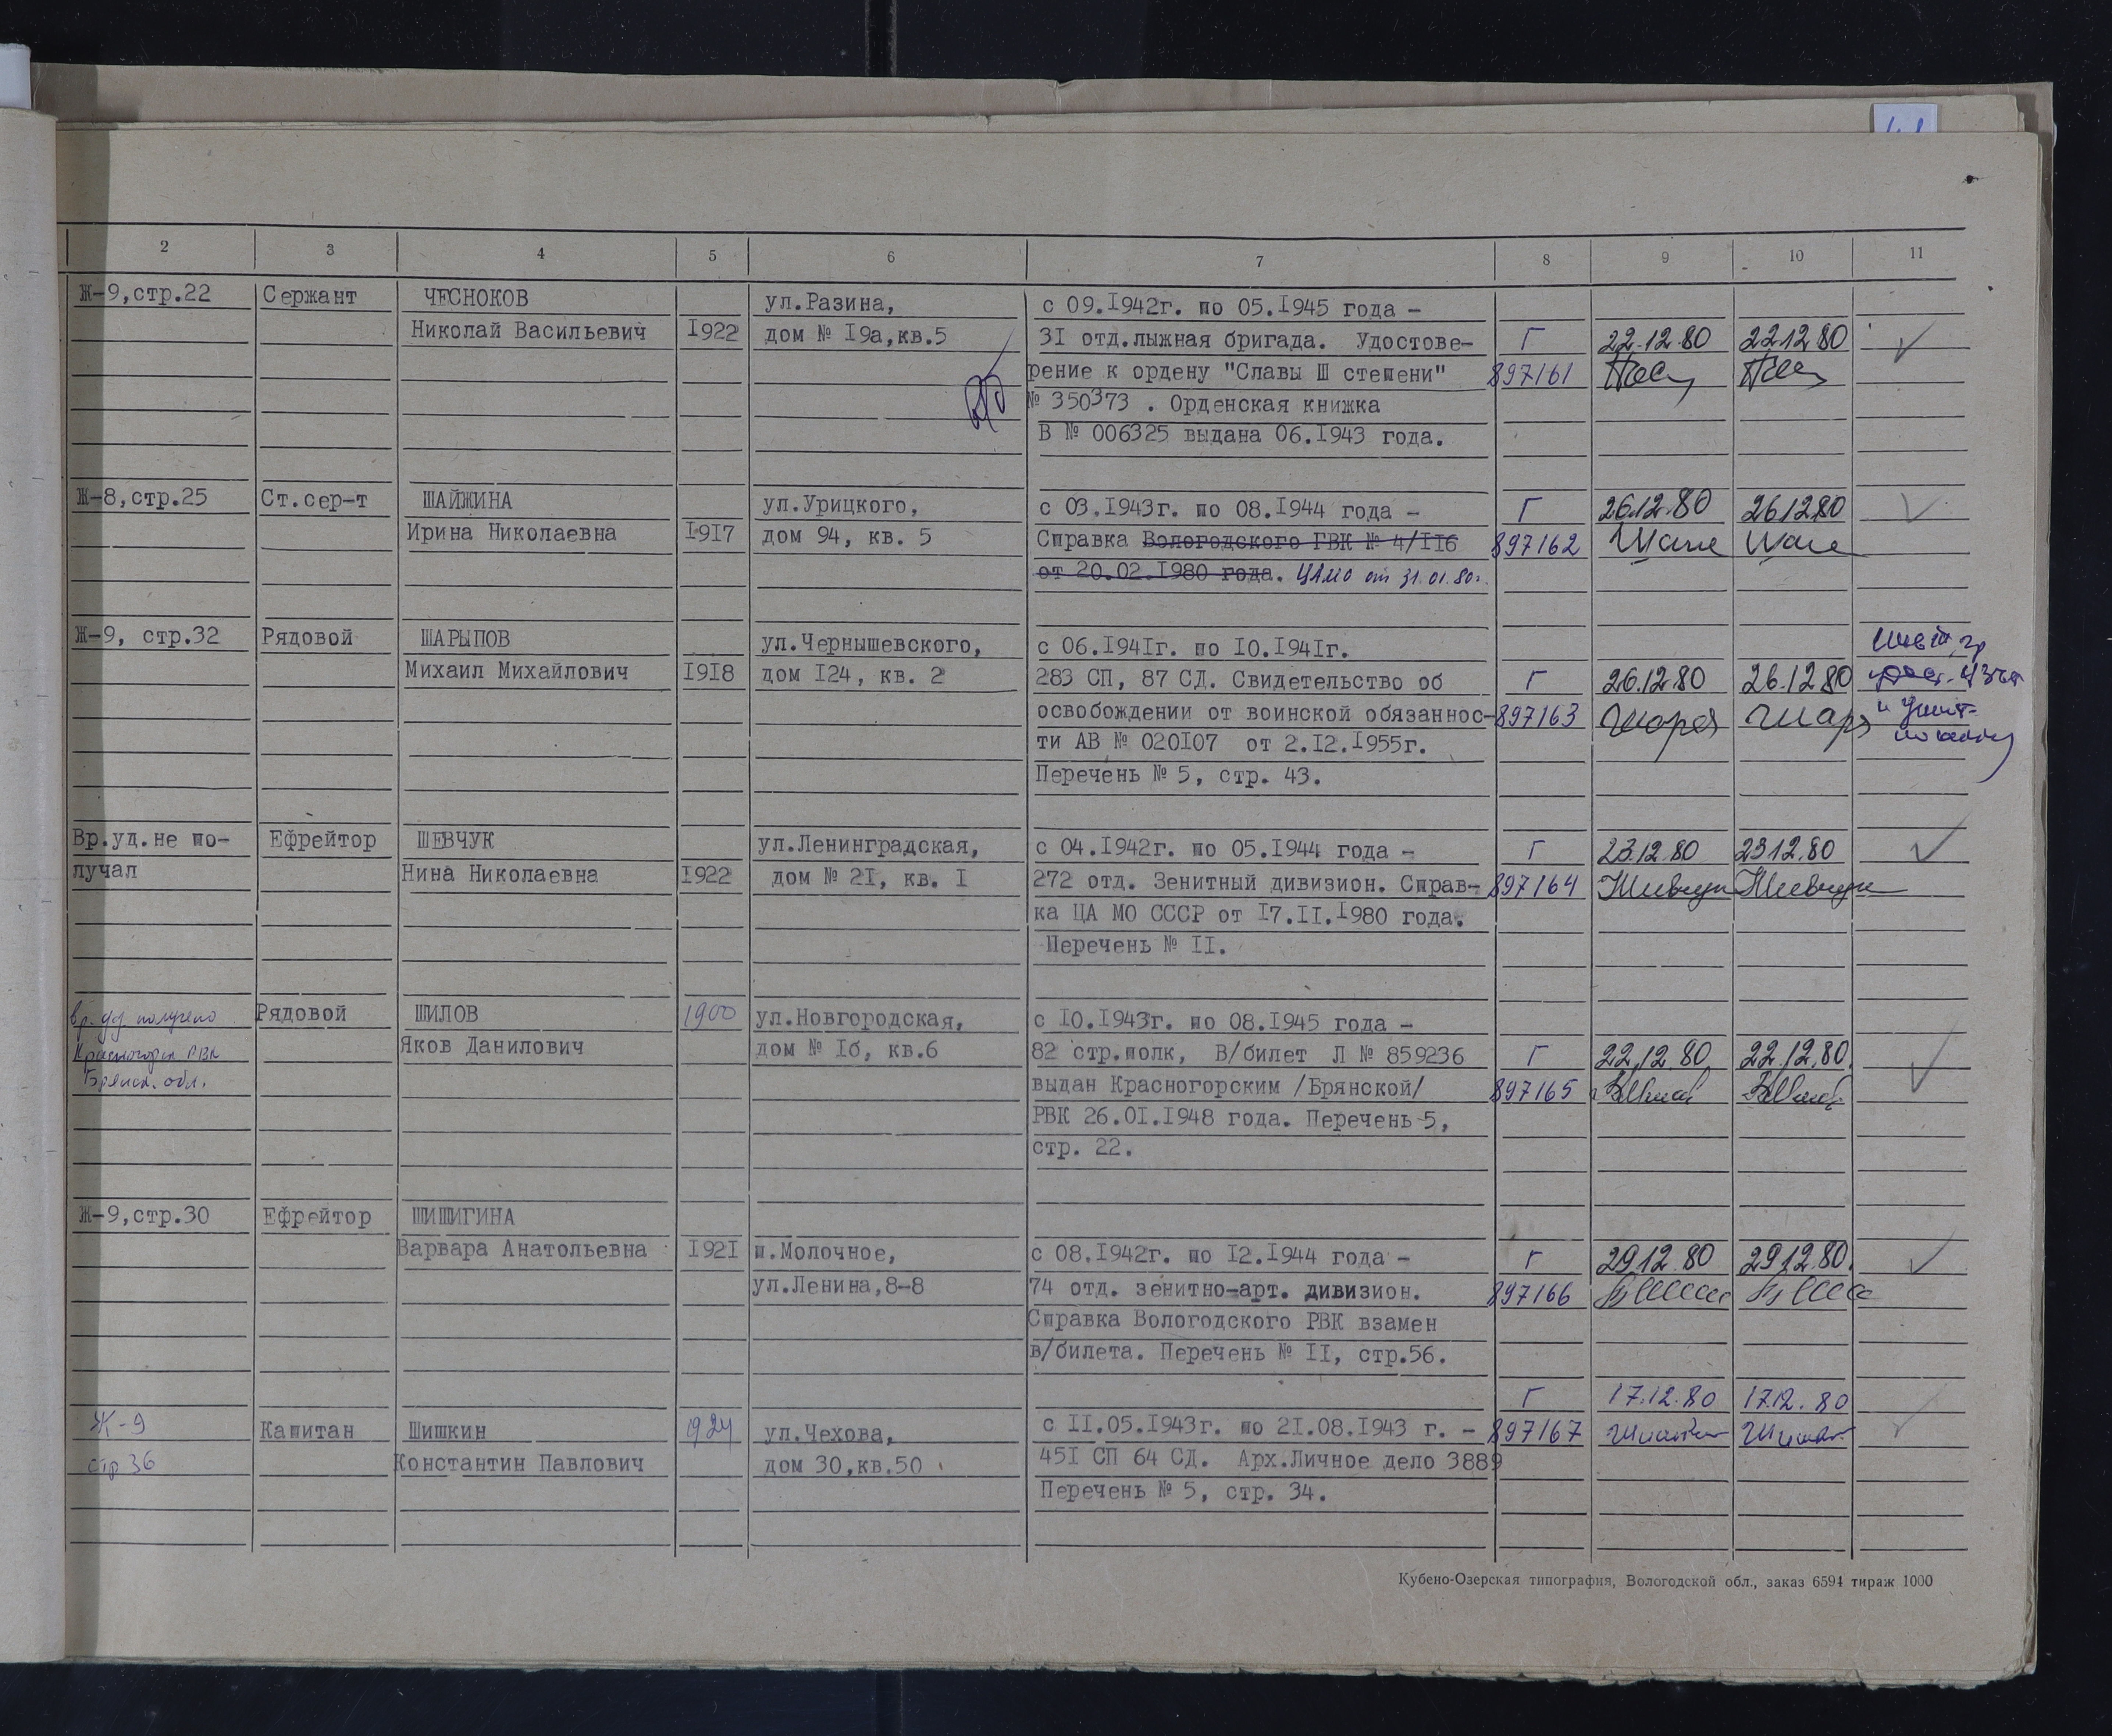 2 3 4 5 6 7 8 9 10 11
Ж-9,стр.22 Сержант ЧЕСНОКОВ ул.Разина, с 09.1942г. по 05.1945 года -
Николай Васильевич 1922 дом № 19а,кв.5 31 отд.лыжная бригада. Удостове- Г 22.12.80 22.12.80
рение к ордену "Славы Ш степени" 897161
№ 350373 . Орденская книжка
В № 006325 выдана 06.1943 года.
Ж-8,стр.25 Ст.сер-т ШАЙЖИНА ул.Урицкого, с 03.1943г. по 08.1944 года - Г 26.12.80 26.12.80
Ирина Николаевна 1917 дом 94, кв. 5 Справка Вологодского ГВК № 4/116 897162
от 20.02.1980 года. ЦАМО от 31.01.80г.
Ж-9, стр.32 Рядовой ШАРЫПОВ ул.Чернышевского, с 06.1941г. по 10.1941г.
Михаил Михайлович 1918 дом 124, кв. 2 283 СП, 87 СД. Свидетельство об Г 26.12.80 26.12.80
освобождении от воинской обязаннос- 897163
ти АВ № 020107 от 2.12.1955г.
Перечень № 5, стр. 43.
Вр.уд.не по- Ефрейтор ШЕВЧУК ул.Ленинградская, с 04.1942г. по 05.1944 года - Г 23.12.80 23.12.80
лучал Нина Николаевна 1922 дом № 21, кв. 1 272 отд. Зенитный дивизион. Справ- 897164 Шевчук Шевчук
ка ЦА МО СССР от 17.11.1980 года.
Перечень № 11.
вр. уд. получено Рядовой ШИЛОВ 1900 ул.Новгородская, с 10.1943г. по 08.1945 года -
Красногорск РВК Яков Данилович дом № 1б, кв.6 82 стр.полк, В/билет Л № 859236 Г 22.12.80 22.12.80.
Брянск. обл. выдан Красногорским /Брянской/ 897165
РВК 26.01.1948 года. Перечень 5,
стр. 22.
Ж-9,стр.30 Ефрейтор ШИШИГИНА
Варвара Анатольевна 1921 п.Молочное, с 08.1942г. по 12.1944 года - Г 29.12.80 29.12.80.
ул.Ленина,8-8 74 отд. зенитно-арт. дивизион. 897166
Справка Вологодского РВК взамен
в/билета. Перечень № 11, стр.56.
Г 17.12.80 17.12.80
Ж-9 Капитан Шишкин 1924 ул.Чехова, с 11.05.1943г. по 21.08.1943 г. - 897167
стр 36 Константин Павлович дом 30,кв.50 451 СП 64 СД. Арх.Личное дело 3889
Перечень № 5, стр. 34.
Кубено-Озерская типография, Вологодской обл., заказ 6594 тираж 1000